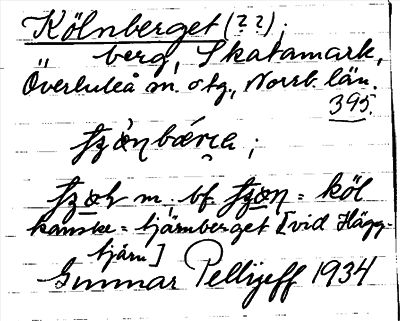 Kölnberget (??);
berg, Skatamark,
Överluleå sn. o tg., Norrb. län.
395.
m. bf. = köl
kanske = tjärnberget [vid Hägg-
tjärn]
Gunnar Pellijeff 1934